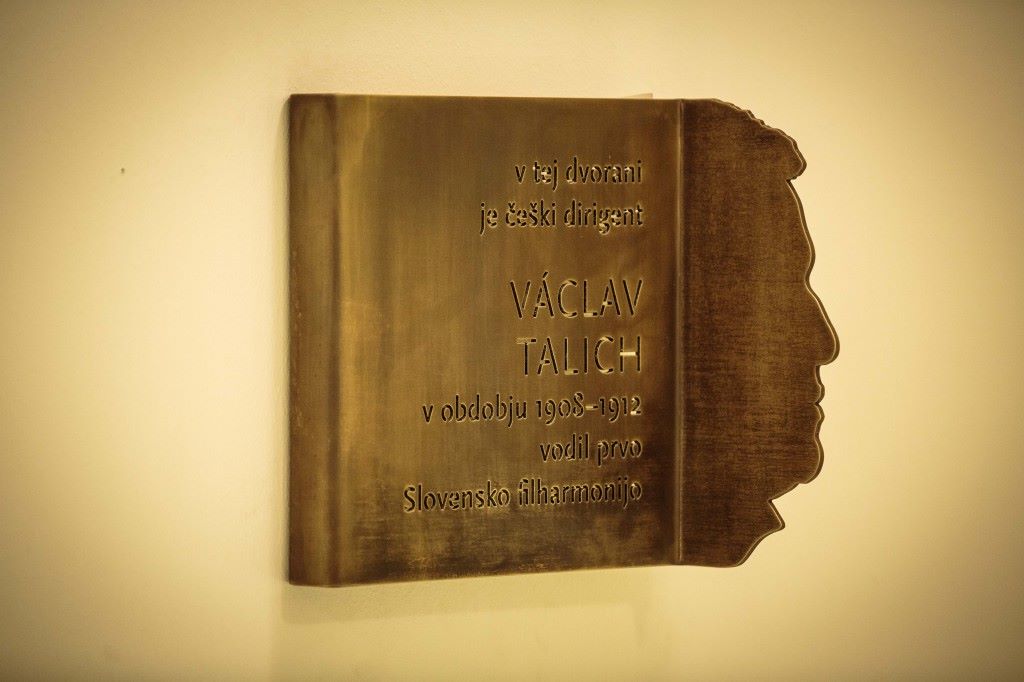 v tej dvorani
je češki dirigent
VÁCLAV
TALICH
v obdobju 1908–1912
vodil prvo
Slovensko filharmonijo